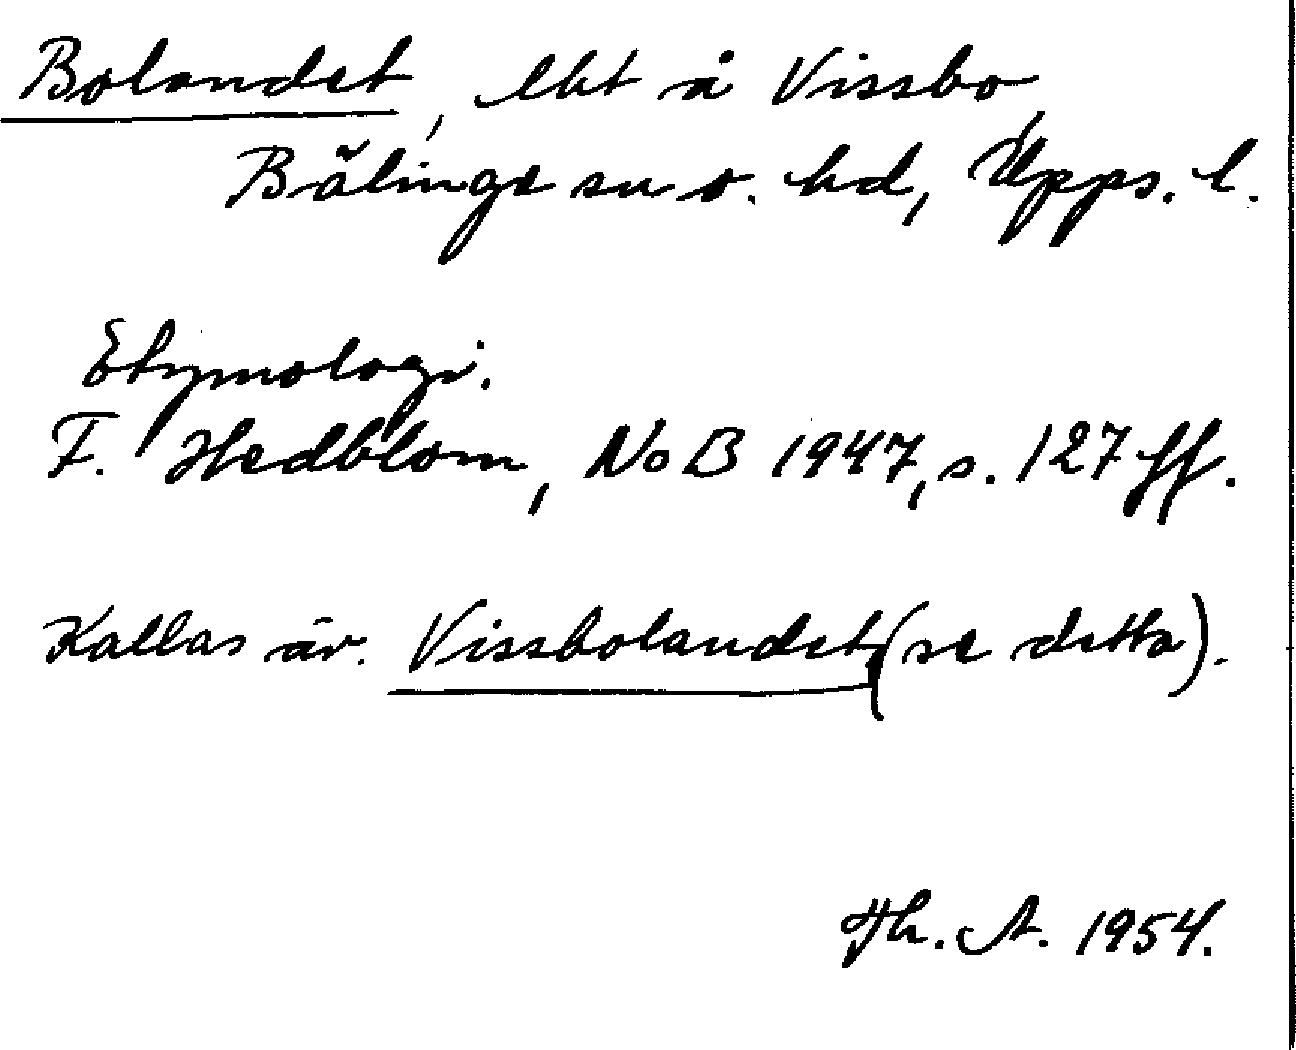 Bolandet, lht å Vissbo,
Bälinge sn o. hd, Upps. l.
Etymologi.
F. Hedblom, NoB 1947, s. 127 ff.
Kallas äv. Vissbolandet (se detta).
Th. A. 1954.